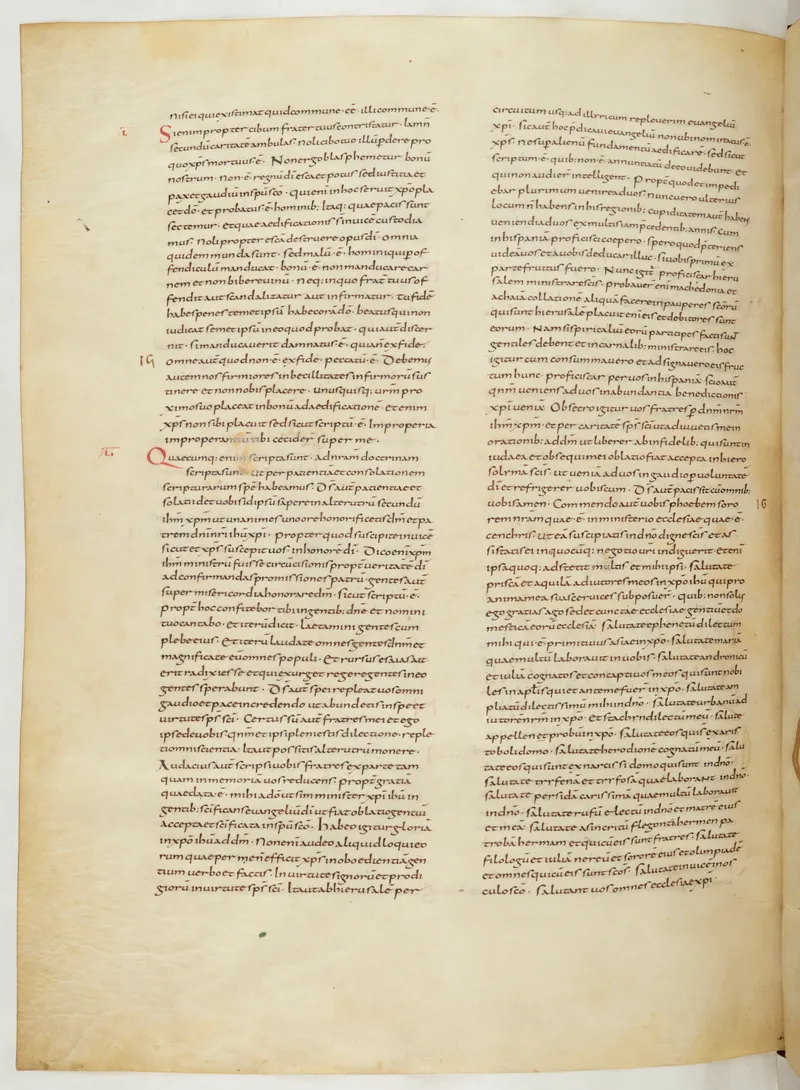 nisi ei qui existimat quid commune · cē · illi commune · ē ·
L
Si enim propter cibum frater tuus contristatur · iam n̄
secundū caritatē ambulas · Noli cibo tuo illū pdere pro
quo xp̄s mortuus · ē · Non ergo blasphemetur bonū
nostrum · non · ē · regnū dī esca et potus sed iustitia et
pax et gaudiū in sp̄u sc̄o · qui enī in hoc seruit xp̄o pla
cet dō · et probatus · ē · hominib; Itaq; quae pacis sunt
sectemur · et quae aedificationis sunt inuicē custodia
mus · Noli propter escā destruere opus dī · omnia
quidem munda sunt · sed malū · ē · homini qui p of
fendiculū manducat · bonū · ē · non manducare car
nem et non bibere uinū · neq; in quo frat̄ tuus of
fendit aut scandalizatur aut infirmatur · tu fidē
habes penes temet ipsū habe corā dō · beatus qui non
iudicat semet ipsū in eo quod probat · qui aut̄ discer
nit · si manducauerit damnatus · ē · quia n̄ ex fide ·
omne aut̄ quod non · ē · ex fide · peccatū · ē · Debemus
autem nos firmiores inbecillitates infirmorū sus
tinere et non nobis placere · unusquisq; ur̄m pro
ximo suo placeat in bonū ad aedificationē · et enim
xp̄s non sibi placuit sed sicut scriptū · ē · Improperia
improperantiū tibi cecider̄ super me ·
LI
Quaecunq; enim scripta sunt · ad nr̄am doctrinam
scripta sunt · ut per patientiā et consolationem
scripturarum spē habeamus · D̄s aut̄ patientiae et
solatii det uobis id ipsū sapere in alterutrū secundū
ihm̄ xpm̄ ut unanimes uno ore honorificetis dm̄ et pa
trem dn̄i nr̄i ihū xp̄i · propter quod suscipite inuicē
sicut et xp̄s suscepit uos in honorē dī · Dico enī xpm̄
ihm̄ ministrū fuisse circucisionis propt̄ ueritatē dī
ad confirmandas promissiones patrū · gentes aut̄
super misericordia honorare dm̄ · sicut scriptū · ē ·
propt̄ hoc confitebor tibi in gentib; dn̄e et nomini
tuo cantabo · et iterū dicit · Laetamini gentes cum
plebe eius · Et iterū laudate omnes gentes dn̄m et
magnificate eū omnes populi · Et rursus esaias ait
erit radix iesse et qui exurget regere gentes in eo
gentes sperabunt · D̄s aut̄ spei repleat uos omni
gaudio et pace in credendo ut abundetis in spe et
uirtute sp̄s sc̄i · Certus sū aut̄ fratres mei et ego
ipse de uobis qnm̄ et ipsi pleni estis dilectione · reple
ti omni scientia · Ita ut possitis alterutrū monere ·
Audacius aut̄ scripsi uobis fratres ex parte tam
quam in memoriā uos reducens · propt̄ gratiā
quae data · ē · mihi a dō ut sim minister xp̄i ihū in
gentib; sc̄ificans euangeliū dī ut fiat oblatio gentiū
accepta et sc̄ificata in sp̄u sc̄o · habeo igitur gloriā
in xp̄o ihū ad dm̄ · Non enī audeo aliquid loqui eo
rum quae per me n̄ efficit xp̄s in oboedientiā gen
tium uerbo et factis · In uirtute signorū et prodi
giorū in uirtute sp̄s sc̄i · Ita ut ab hierusalē per
circuitum usq; ad illiricum repleuerim euangeliū
xp̄i · sic aut̄ hoc pdicaui euangeliū non ubi nominatus · ē ·
xp̄s · ne sup alienū fundamentū aedificarē · sed sicut
scriptum · ē · quib; non · ē · annuntiatū de eo uidebunt et
qui non audier̄ intellegent · propt̄ quod et impedi
ebar plurimum uenire ad uos · nunc uero ulterius
locum n̄ habens in his regionib; cupiditatem aut̄ habens
ueniendi ad uos ex multis iam pcedentib; annis cum
in hispaniā proficisci coepero · spero quod pteriens
uideā uos et a uobis deducar illuc · si uobis primū ex
parte fruitus fuero · Nunc igit̄ proficiscar hieru
salem ministrare sc̄is · probauer̄ enī machedonia et
achaiā collationē aliquā facere in pauperes sc̄orū
qui sunt hierusalē placuit enī eis et debitores sunt
eorum · Nam si spiritaliū eorū participes facti sunt
gentiles debent et in carnalib; ministrare eis · hoc
igitur cum consummauero et adsignauero eis fruc
tum hunc · proficiscar per uos in hispaniā scio aut̄
qnm̄ ueniens ad uos in abundantia benedictionis
xp̄i ueniā · Obsecro igitur uos fratres p dnm̄ nrm̄
ihm̄ xpm̄ · et per caritatē sp̄s sc̄i ut adiuuetis me in
orationib; ad dm̄ ut liberer ab infidelib; qui sunt in
iudaea et obsequii mei oblatio fiat accepta in hiero
solimā sc̄is · ut ueniā ad uos in gaudio p uoluntatē
dī et refrigerer uobiscum · D̄s aut̄ pacis sit cū omnib;
uobis amen · Commendo aut̄ uobis phoebem soro
rem nr̄am quae · ē · in ministerio ecclesiae quae · ē ·
cenchris · ut eā suscipiatis in dn̄o digne sc̄is et as
sistatis ei in quocūq; negotio uri̅ indiguerit · et enī
ipsa quoq; adstetit multis et mihi ipsi · salutate
priscā et aquilā adiutores meos in xp̄o ihū qui pro
anima mea suas ceruices subposuer̄ · quib; non solus
ego gratias ago sed et cunctae ecclesiae gentiū et do
mesticā eorū ecclesiā · Salutate ephenetū dilectum
mihi qui · ē · primitiuus asiae in xp̄o · salutate mariā
quae multū laborauit in uobis · Salutate andronicū
et iuliā cognatos et concaptiuos meos qui sunt nobi
les in aplīs qui et ante me fuer̄ in xp̄o · Salutate am
pliatū dilectissimū mihi in dn̄o · Salutate urbanū ad
iutorē nr̄m in xp̄o · Et stachin dilectū meū · Salute
appellen et probū in xp̄o · Salutate eos qui s̄ ex aris
toboli domo · Salutate herodionē cognatū meū · Salu
tate eos qui sunt ex narcissi domo qui sunt in dn̄o ·
Salutate trifenā et trifosā quae laborant in dn̄o ·
Salutate persidā carissimā quae multū laborauit
in dn̄o · Salutate rufū electū in dn̄o et matrē eius
et meā · Salutate asincritū flegontā hermen pa
trobā herman et qui cū eis sunt fratres · Salutate
filologū et iuliā nereū et sororē eius et olimpiadē
et omnes qui cū eis sunt sc̄os · Salutate inuicē in os
culo sc̄o · Salutant uos omnes ecclesiae xp̄i